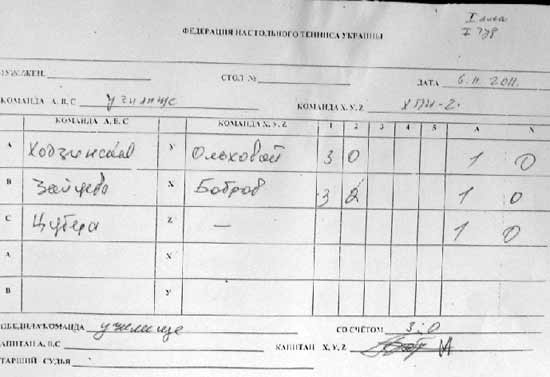 I лига
ФЕДЕРАЦИЯ НАСТОЛЬНОГО ТЕННИСА УКРАИНЫ
МУЖ./ЖЕН. СТОЛ № ДАТА 6.11.2011.
КОМАНДА А, В, С училище КОМАНДА X, Y, Z ХПИ-2
КОМАНДА А, В, С КОМАНДА X, Y, Z 1 2 3 4 5 А X
А Y Ольховой 3 0 1 0
В Зайцева X Бобров 3 2 1 0
С Цубера Z — 1 0
А X
В Y
ПОБЕДИЛА КОМАНДА училище СО СЧЁТОМ 3:0
КАПИТАН А, В, С КАПИТАН X, Y, Z
СТАРШИЙ СУДЬЯ